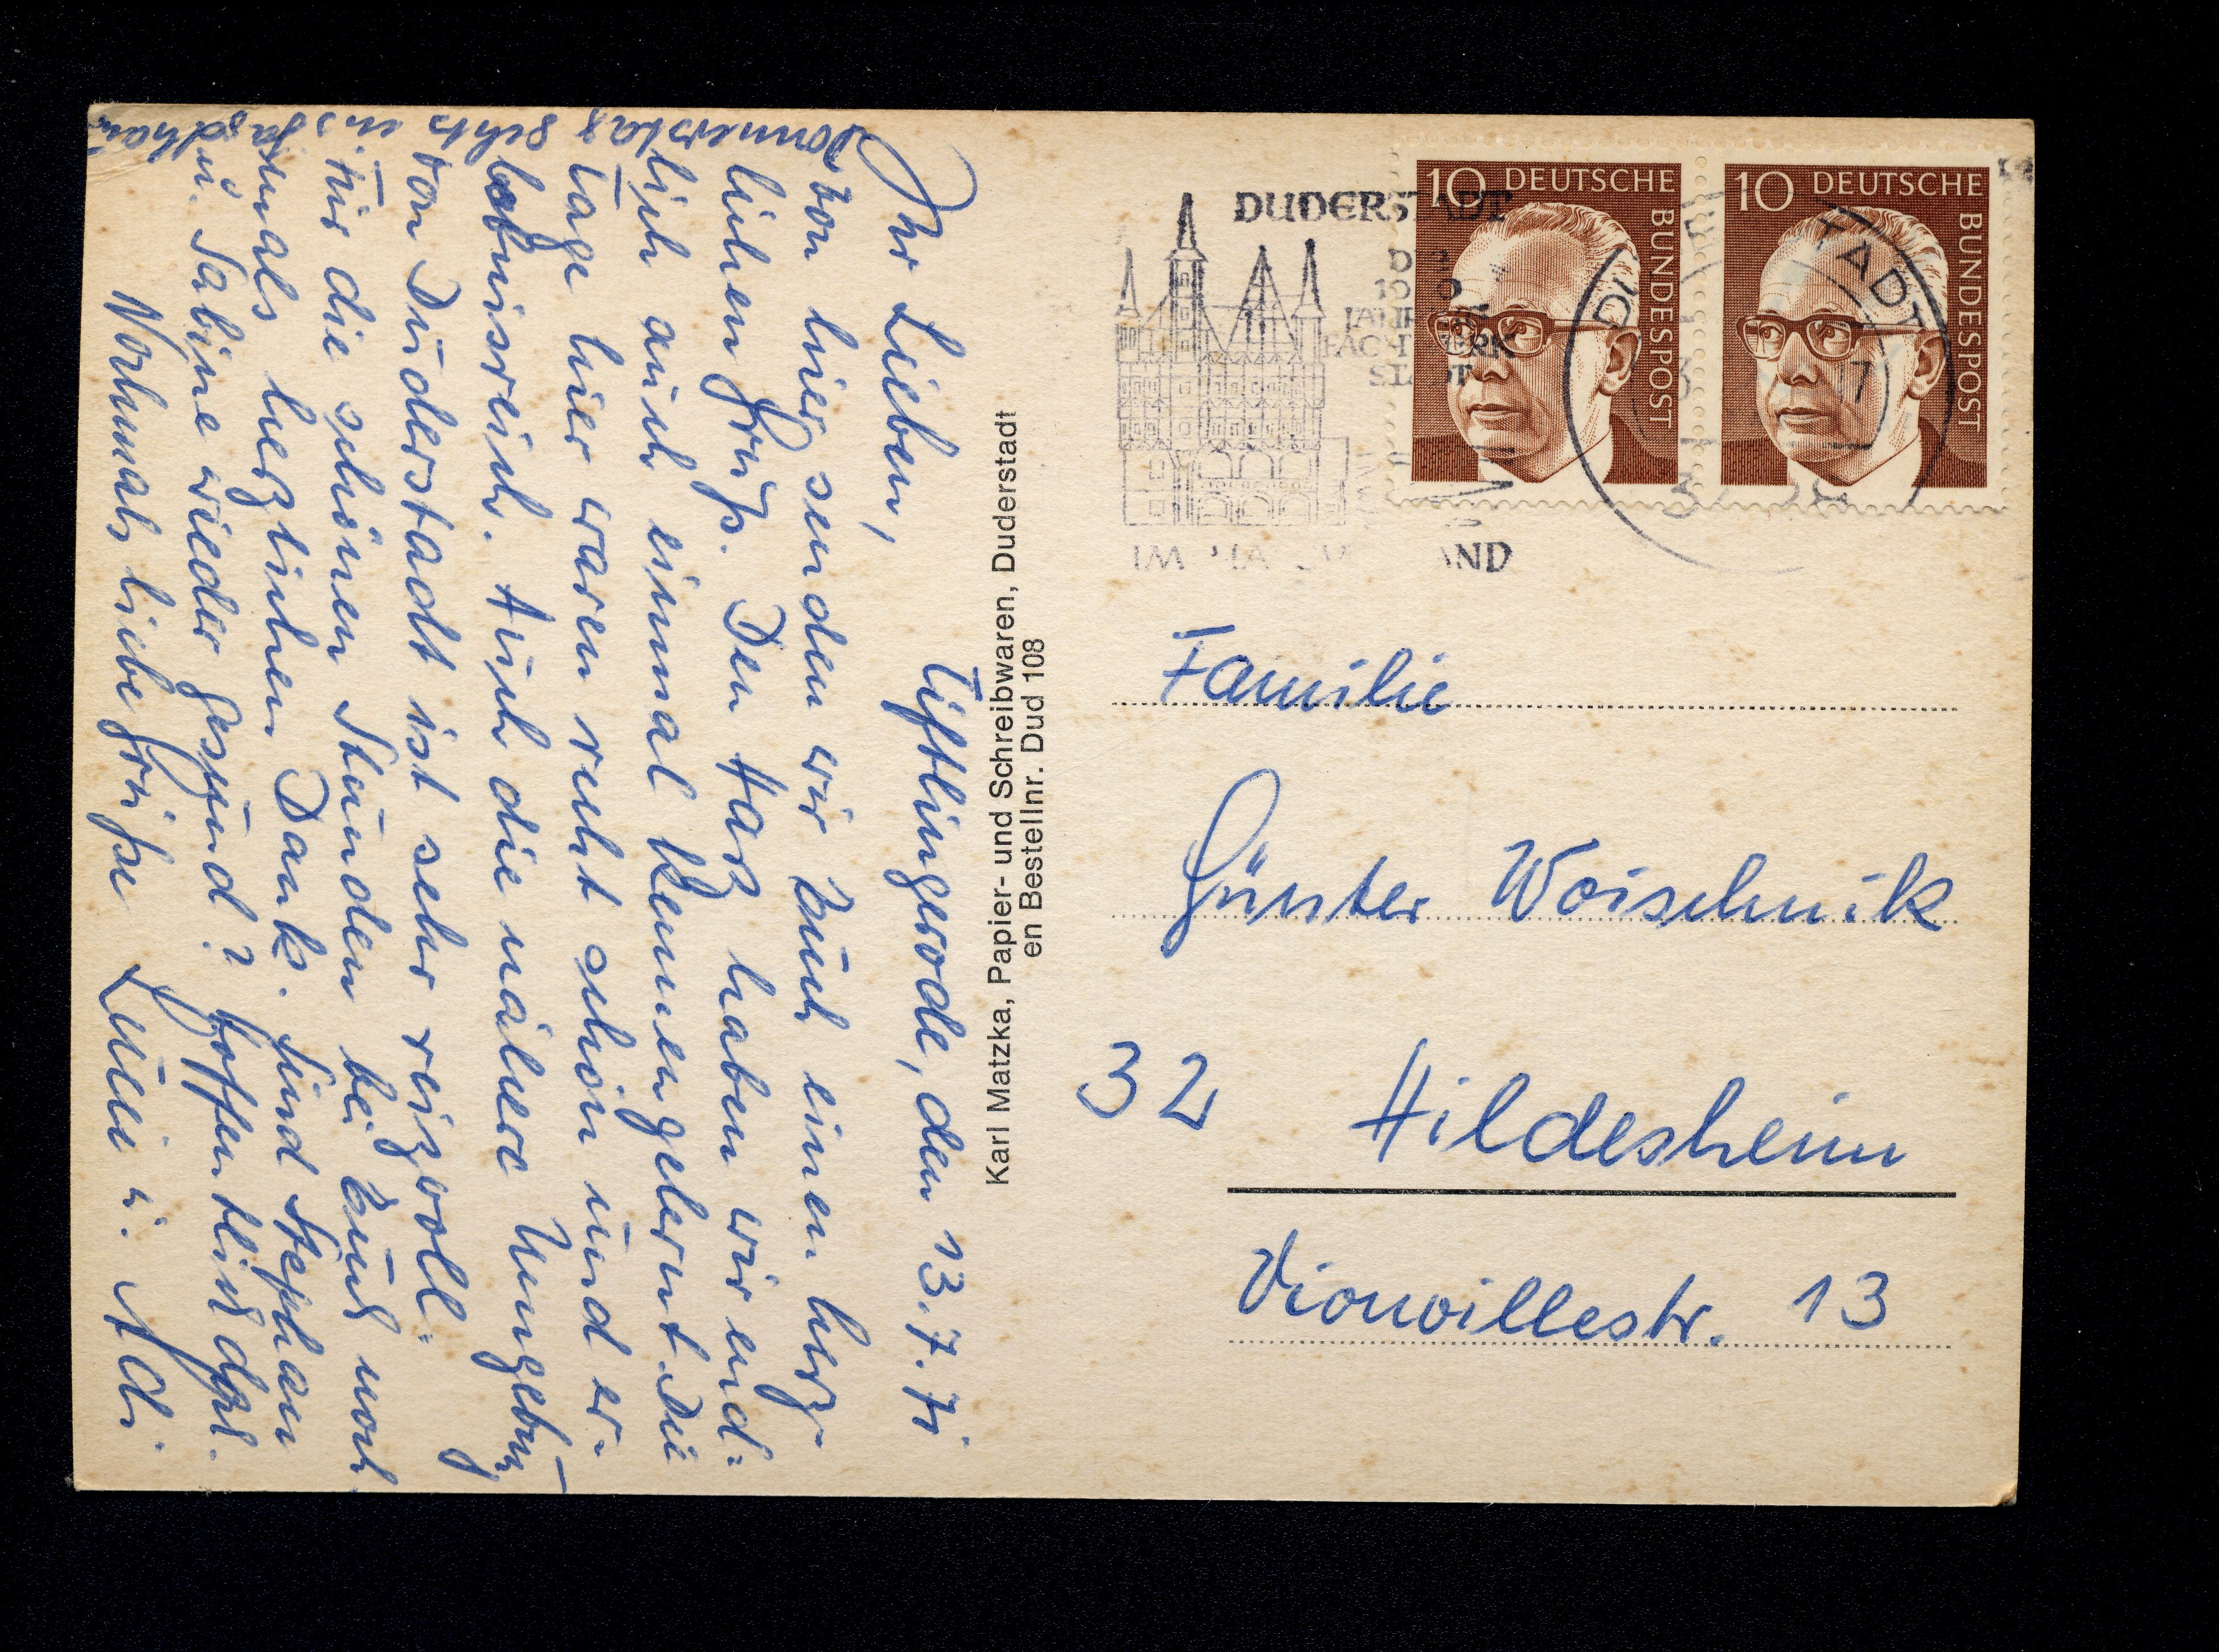 Tiftlingerode, den 13.7.71
Ihr Lieben,
von hier senden wir Euch einen herz-
lichen Gruß. Den Harz haben wir end-
lich auch einmal kennengelernt. Die
Tage hier waren recht schön und er-
lebnisreich. Auch die nähere Umgebung
von Duderstadt ist sehr reizvoll.
Für die schönen Stunden bei Euch noch
mals herzlichen Dank. Sind Stephan
u. Sabine wieder gesund? Hoffentlich
Nochmals liebe Grüße
Donnerstag
gehts
ins
Karl Matzka, Papier- und Schreibwaren, Duderstadt
en Bestellnr. Dud 108
DUDERSTADT
IM
10 DEUTSCHE BUNDESPOST
10 DEUTSCHE BUNDESPOST
Familie
Günter Woischnik
32 Hildesheim
Vionvillestr. 13